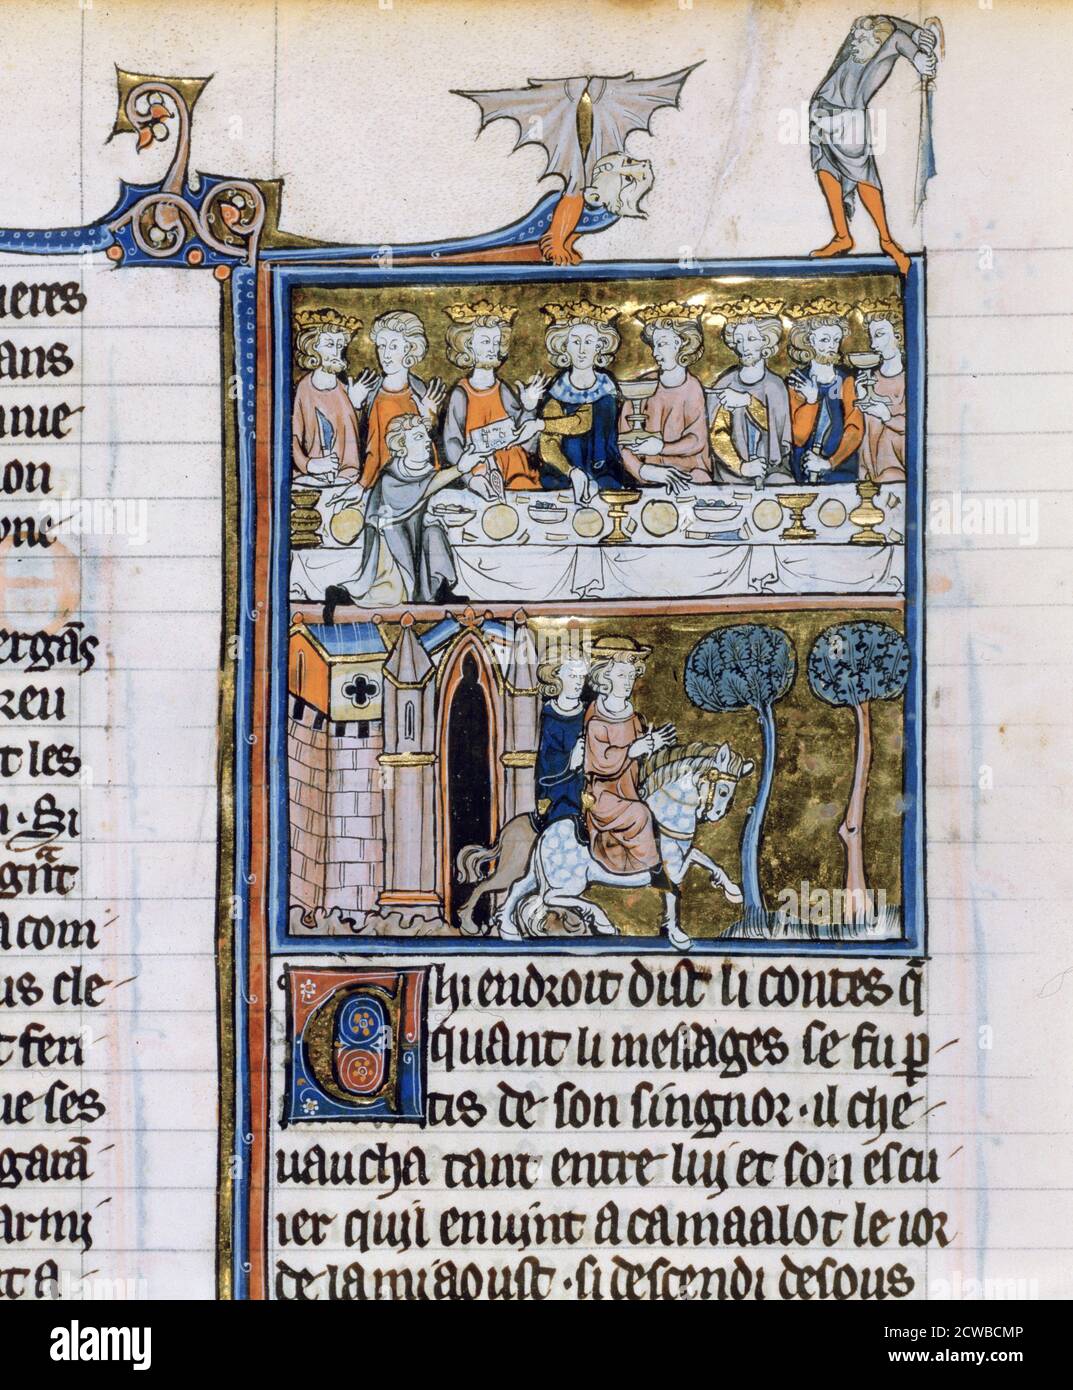 ueres
ans
nnie
on
yne
ergãs
reu
t les
i · Si
gñt
a com
us cle-
t feri-
ue ses
garã
armi
ta
Chi endroit dist li contes q̃
quant li messages se fu p̲-
tis de son singnor · il che-
uaucha tant entre luy et son escu
ier quil en uint a camaalot le ior
de la mi aoust · si descendi desous
alamy
Image ID: 2CWBCMP
www.alamy.com